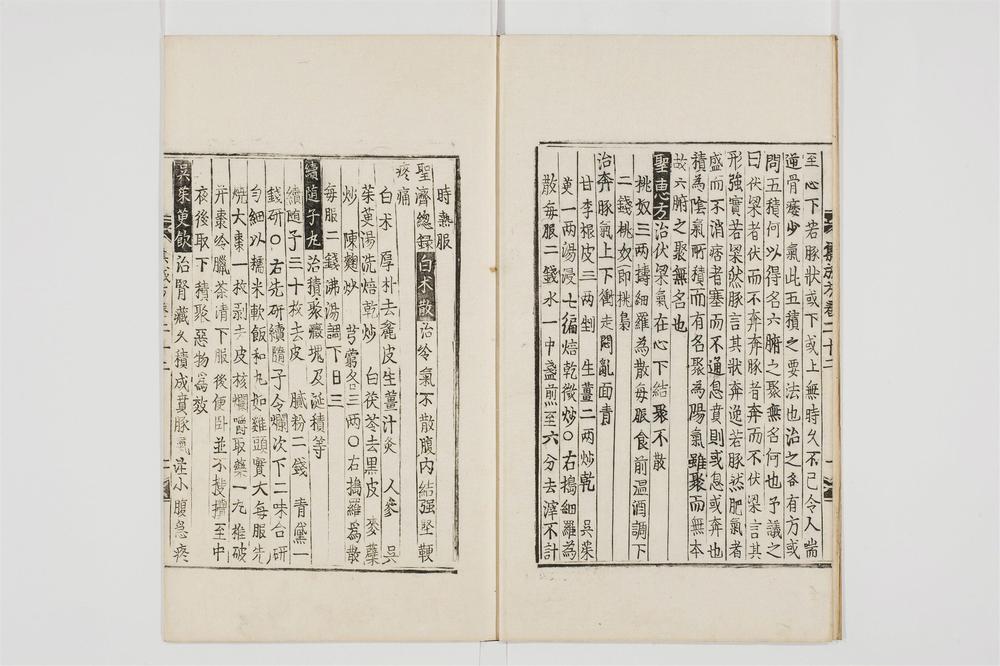 至心下若豚狀或下或上無時久不已令人喘
逆骨痿少氣此五積之要法也治之各有方或
問五積何以得名六腑之聚無名何也予議之
曰伏梁者伏而不奔奔豚者奔而不伏梁言其
形強實若梁然豚言其狀奔逸若豚然肥氣者
盛而不消痞者塞而不通息賁則或息或奔也
積為陰氣所積而有名聚為陽氣雖聚而無本
故六腑之聚無名也
聖惠方治伏梁氣在心下結聚不散
桃奴三兩擣細羅為散每服食前温酒調下
二錢桃奴即桃梟
治奔豚氣上下衝走悶亂面青
甘李根皮三两剉 生薑二两炒乾 呉茱
萸一两湯浸七徧焙乾微炒〇右搗細羅為
散每服二錢水一中盞煎至六分去滓不計
時熱服
聖濟總録白朮散治冷氣不散腹内結强堅鞕
疼痛
白朮 厚朴去麁皮生薑汁炙 人參 呉
茱萸湯洗焙乾炒 白茯苓去黑皮 麥蘗
炒 陳麴炒 芎藭各三两〇右搗羅爲散
每服二錢沸湯調下日三
續随子丸治積聚癥塊及涎積等
續随子三十枚去皮 膩粉二錢 青黛一
錢研〇右先研續隨子令爛次下二味合研
匀細以糯米軟飯和丸如雞頭實大每服先
燒大棗一枚剥去皮核爛嚼取藥一丸椎破
并棗冷臘茶清下服後便卧並不搜攪至中
夜後取下積聚惡物爲效
呉茱萸飲治腎藏久積成賁豚氣注小腹急疼